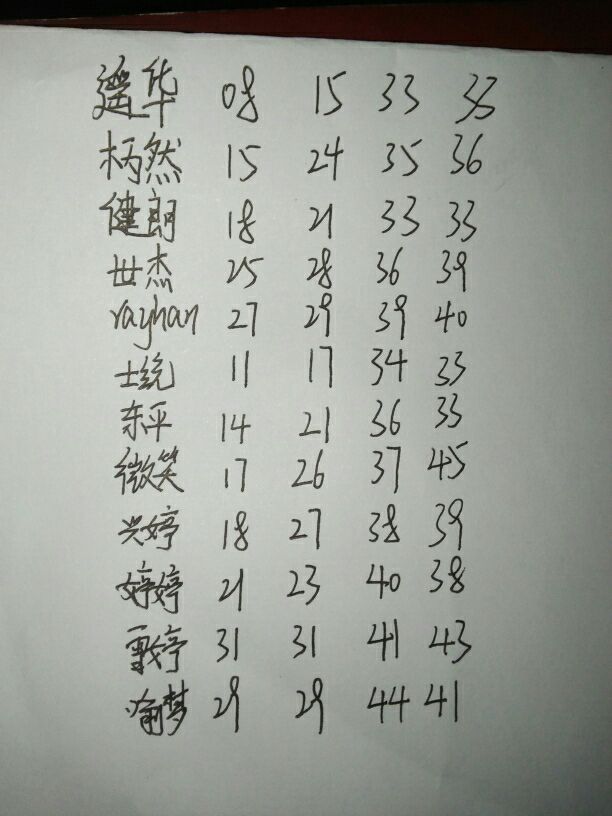 遥华 08 15 33 33
柄然 15 24 35 36
健朗 18 21 33 33
世杰 25 28 36 39
rayhan 27 29 39 40
士统 11 17 34 33
东平 14 21 36 33
微笑 17 26 37 45
兴婷 18 27 38 39
婷婷 21 23 40 38
雯婷 31 31 41 43
瑜梦 29 29 44 41